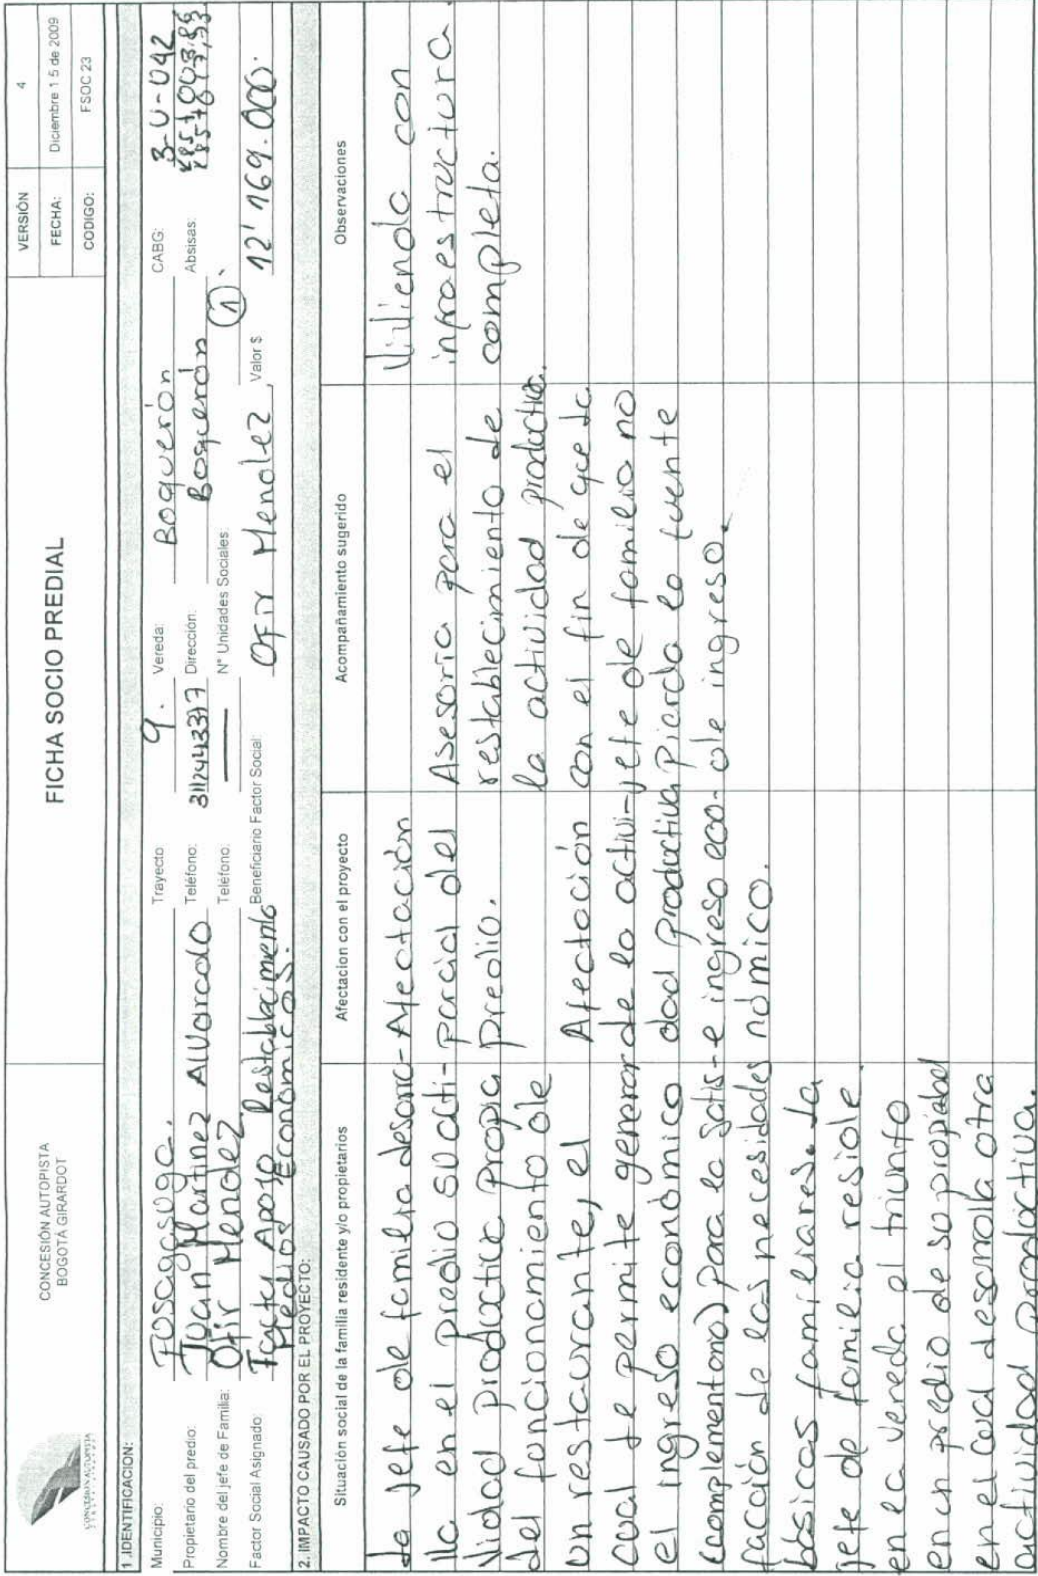 CONCESIÓN AUTOPISTA
BOGOTÁ GIRARDOT
FICHA SOCIO PREDIAL
VERSIÓN 4
FECHA: Diciembre 1 5 de 2009
CODIGO: FSOC 23
1. IDENTIFICACION:
Municipio: Fusagasuga. Trayecto 9. Vereda: Boquerón CABG: 3-U-042
Propietario del predio: Juan Martinez Alvarado Teléfono: 3112443317 Dirección: Boquerón Absisas:
Nombre del jefe de Familia: Ofir Mendez Teléfono: N° Unidades Sociales: 1
Factor Social Asignado: Factor Apoyo Restablecimiento Medios Económicos. Beneficiario Factor Social: Ofir Mendez Valor $ 12'169.000.
2. IMPACTO CAUSADO POR EL PROYECTO:
Situación social de la familia residente y/o propietarios
La jefe de familia desarro-
lla en el predio su acti-
vidad productiva propia
del funcionamiento de
un restaurante, el
cual le permite generar
el ingreso económico
(complementario) para la satis-
facción de las necesidades
básicas familiares. La
jefe de familia reside
en la vereda el triunfo
en un predio de su propiedad
en el cual desarrolla otra
actividad productiva.
Afectacion con el proyecto
Afectación
parcial del
predio.
Afectación
de la activi-
dad productiva
e ingreso eco-
nómico.
Acompañamiento sugerido
Asesoría para el
restablecimiento de
la actividad productiva.
con el fin de que la
jefe de familia no
pierda la fuente
de ingreso.
Observaciones
Vivienda con
infraestructura
completa.